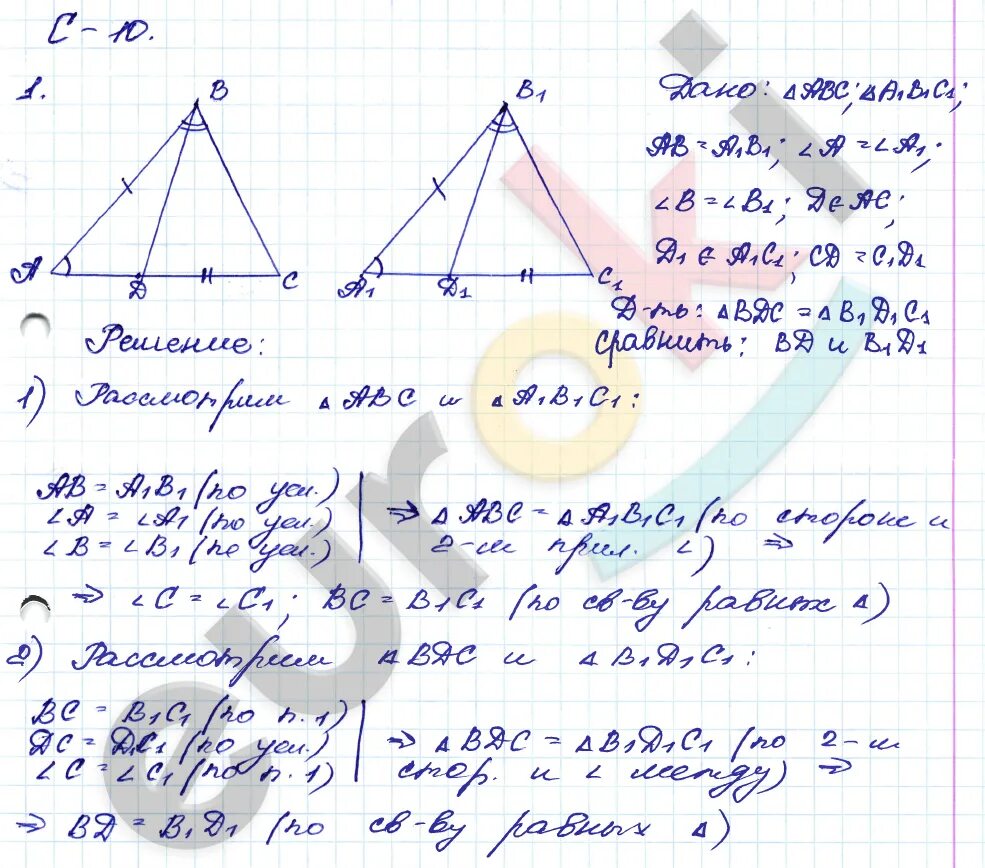 С-10.
1.
B
A
D
C
B1
A1
D1
C1
Дано: △ABC; △A1B1C1;
AB = A1B1; ∠A = ∠A1;
∠B = ∠B1; D ∈ AC;
D1 ∈ A1C1; CD = C1D1
Д-ть: △BDC = △B1D1C1
Сравнить: BD и B1D1
Решение:
1) Рассмотрим △ABC и △A1B1C1:
AB = A1B1 (по усл.)
∠A = ∠A1 (по усл.)
∠B = ∠B1 (по усл.)
⇒ △ABC = △A1B1C1 (по стороне и
2-м прил. ∠) ⇒
⇒ ∠C = ∠C1; BC = B1C1 (по св-ву равных △)
2) Рассмотрим △BDC и △B1D1C1:
BC = B1C1 (по п.1)
DC = D1C1 (по усл.)
∠C = ∠C1 (по п.1)
⇒ △BDC = △B1D1C1 (по 2-м
стор. и ∠ между) ⇒
⇒ BD = B1D1 (по св-ву равных △)
euroki